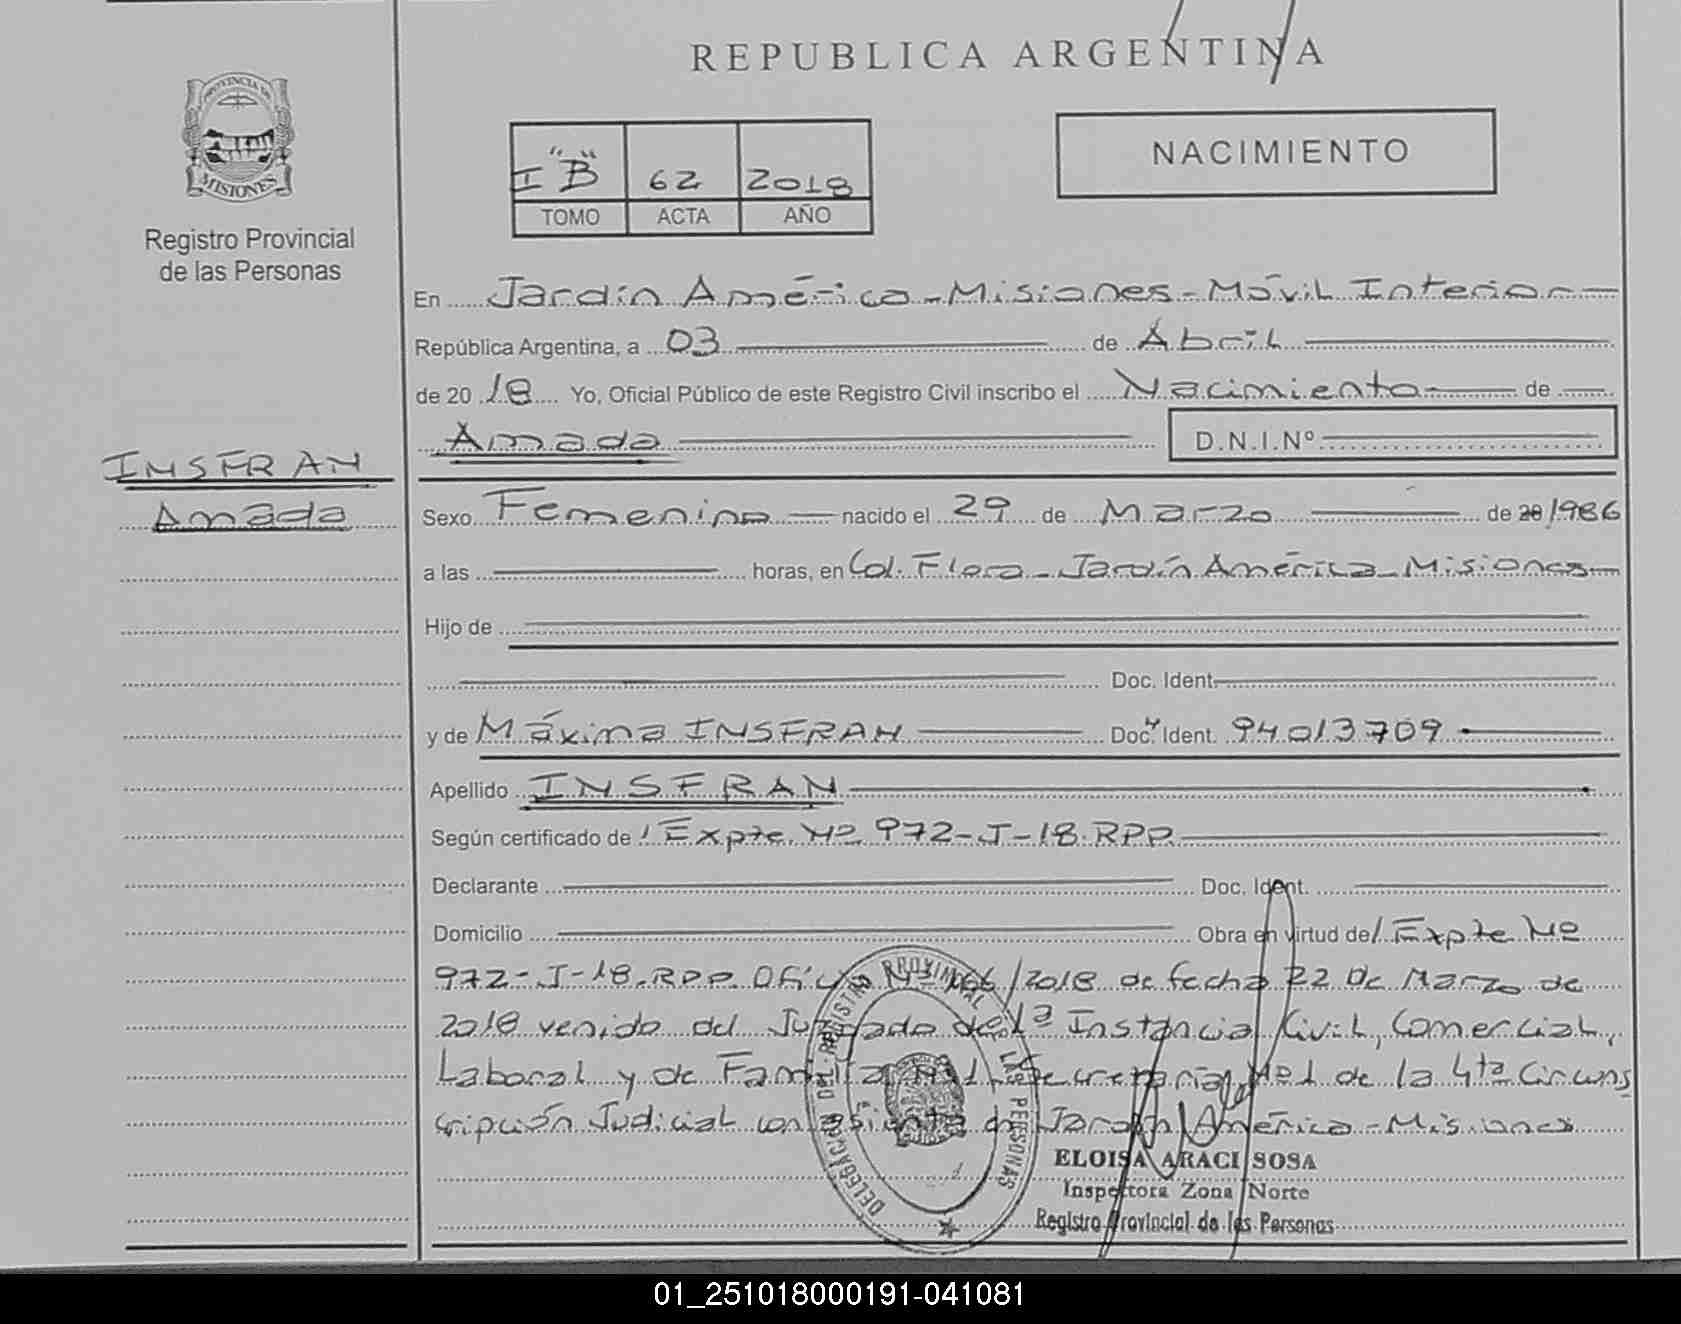 REPUBLICA ARGENTINA
PROVINCIA DE
MISIONES
Registro Provincial
de las Personas
NACIMIENTO
I "B" 62 2018
TOMO ACTA AÑO
En Jardín América - Misiones - Móvil Interior
República Argentina, a 03 de Abril
de 2018 Yo, Oficial Público de este Registro Civil inscribo el Nacimiento de
Amada D.N.I.Nº
INSFRAN
Amada
Sexo Femenino nacido el 29 de Marzo de 20 1986
a las horas, en Col. Flora - Jardín América - Misiones
Hijo de
Doc. Ident.
y de Máxima INSFRAN Doc. Ident. 94013709
Apellido INSFRAN
Según certificado de Expte. Nº 972-J-18.RPP.
Declarante Doc. Ident.
Domicilio Obra en virtud de Expte Nº
972-J-18.RPP. Oficio Nº 166/2018 de fecha 22 De Marzo de
2018 venido del Juzgado de 1ª Instancia Civil, Comercial,
Laboral y de Familia Nº1 Secretaria Nº1 de la 4ta Circuns
cripción Judicial con asiento en Jardín América - Misiones
DELEGACION DEL REGISTRO PROVINCIAL DE LAS PERSONAS
ELOISA ARACI SOSA
Inspectora Zona Norte
Registro Provincial de las Personas
01_251018000191-041081